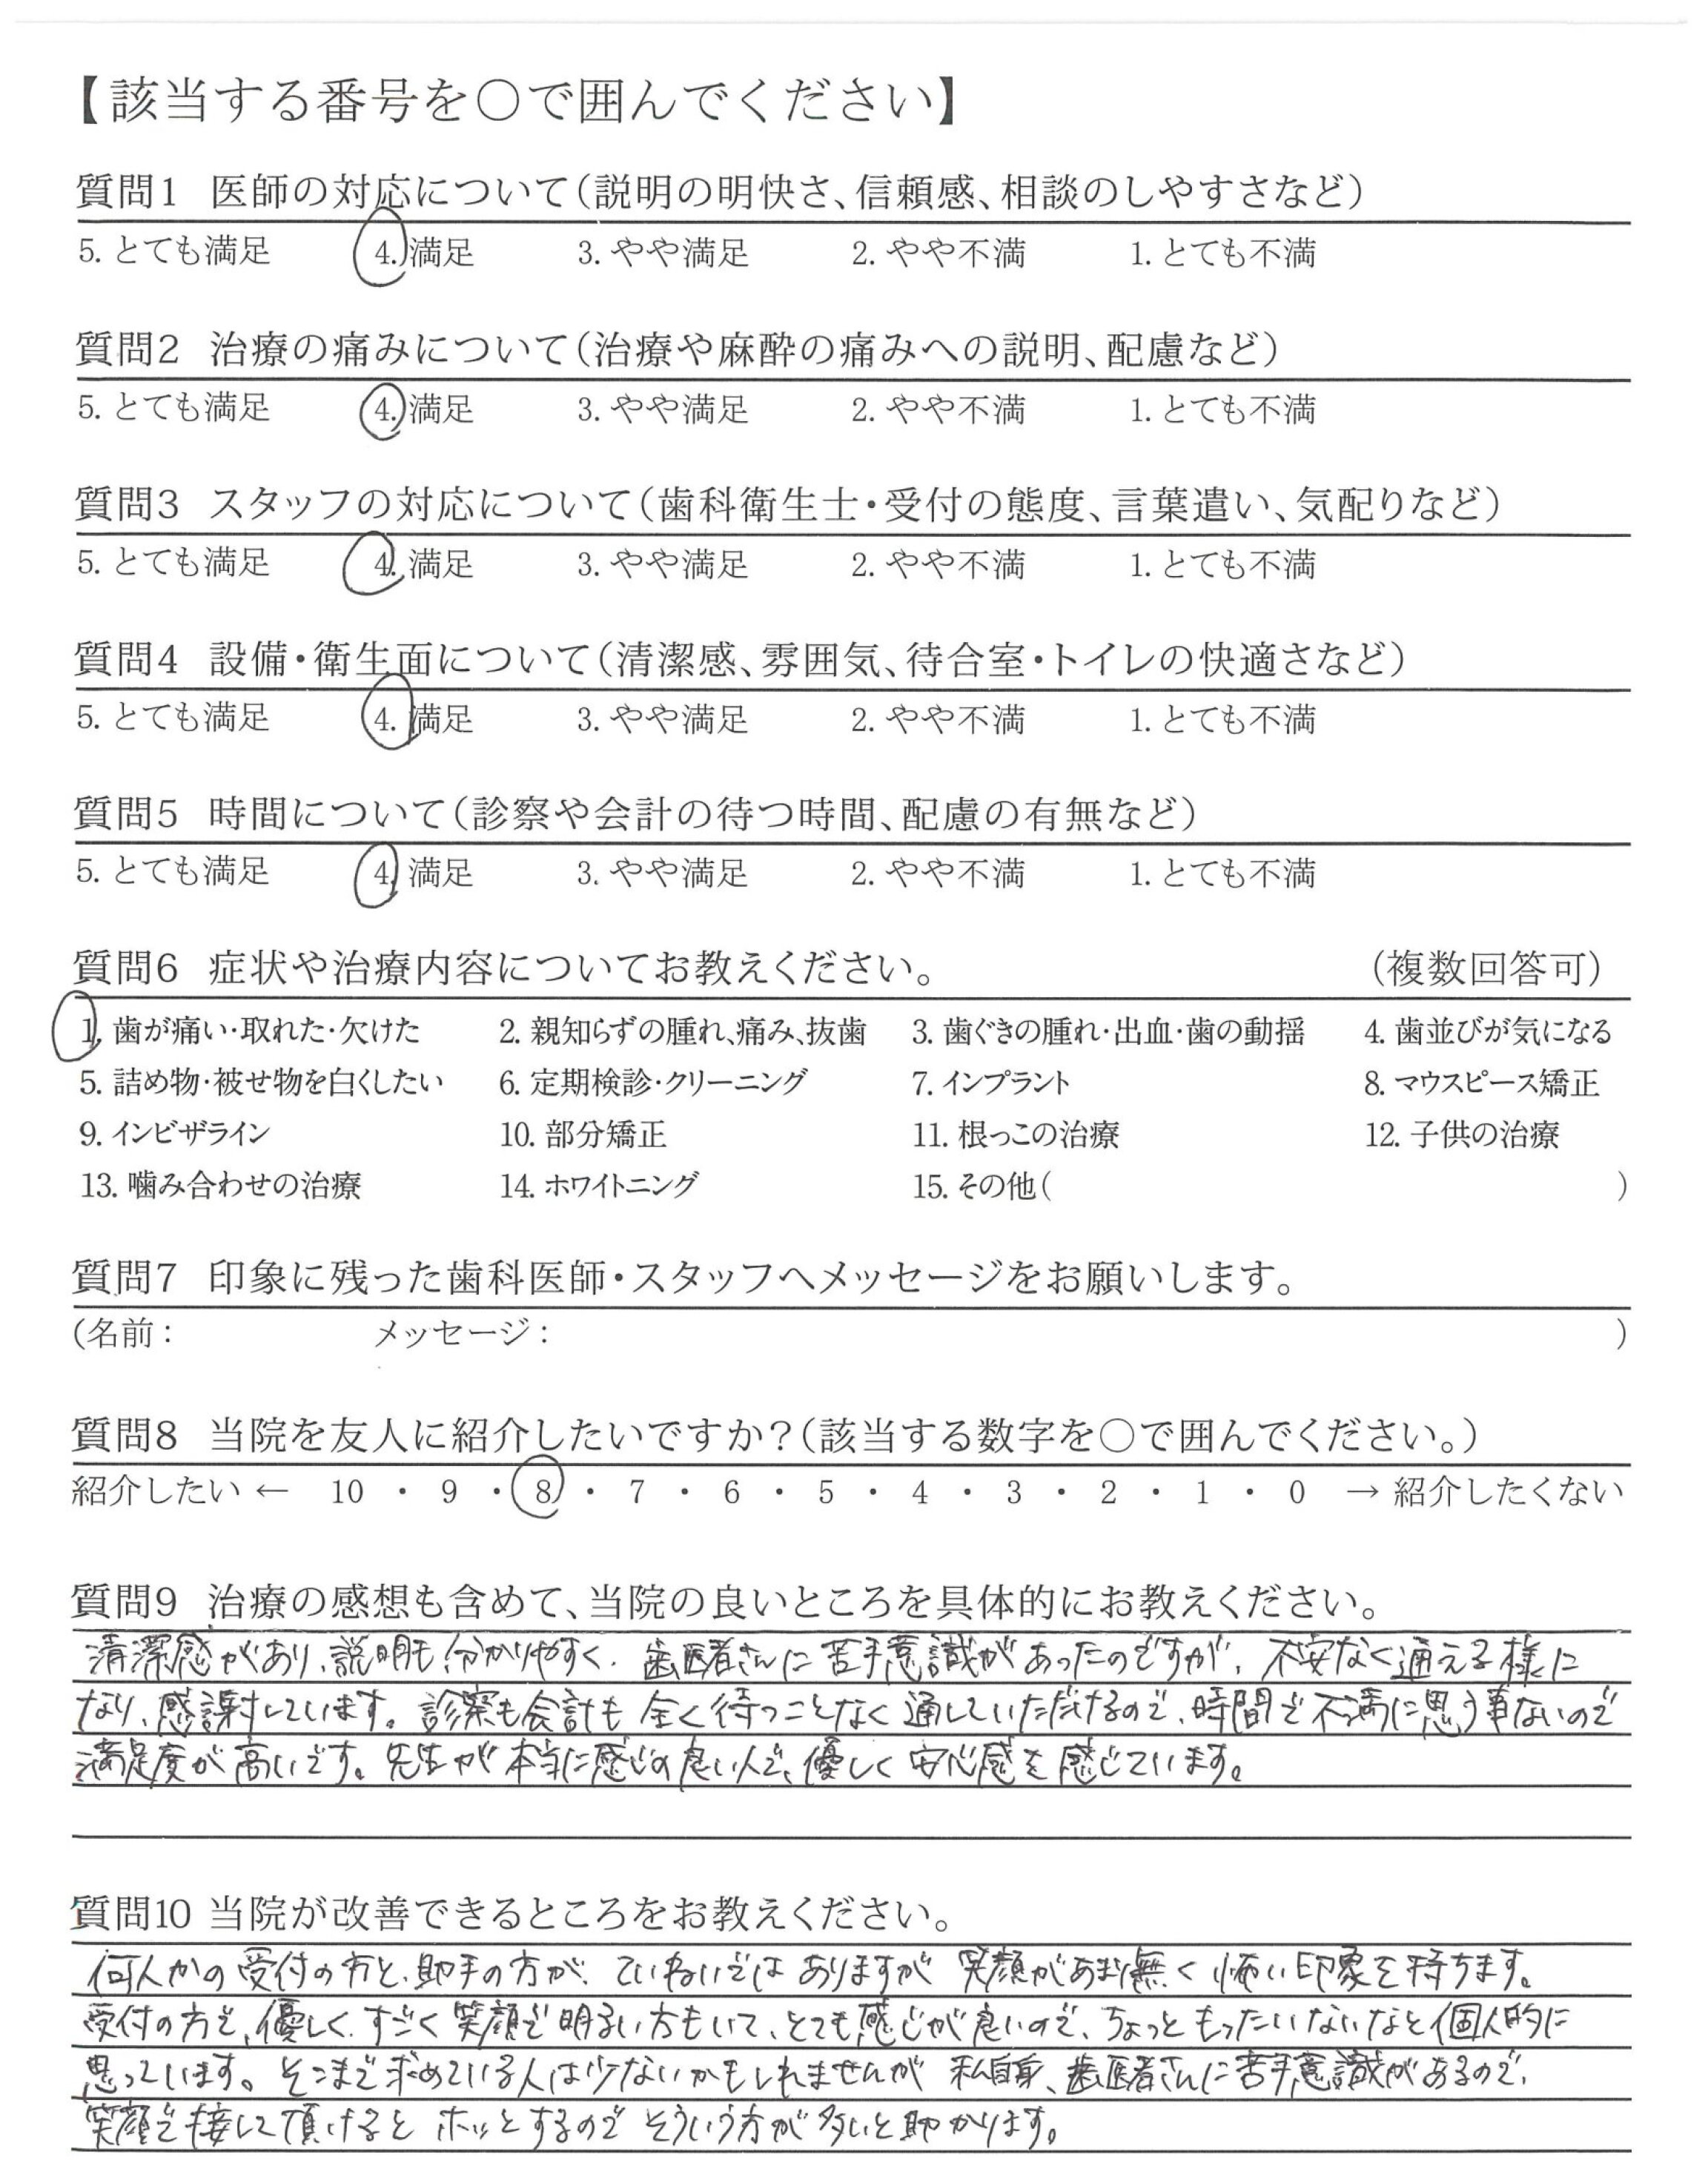 【該当する番号を○で囲んでください】
質問1 医師の対応について(説明の明快さ、信頼感、相談のしやすさなど)
5. とても満足 4. 満足 3. やや満足 2. やや不満 1. とても不満
質問2 治療の痛みについて(治療や麻酔の痛みへの説明、配慮など)
5. とても満足 4. 満足 3. やや満足 2. やや不満 1. とても不満
質問3 スタッフの対応について(歯科衛生士・受付の態度、言葉遣い、気配りなど)
5. とても満足 4. 満足 3. やや満足 2. やや不満 1. とても不満
質問4 設備・衛生面について(清潔感、雰囲気、待合室・トイレの快適さなど)
5. とても満足 4. 満足 3. やや満足 2. やや不満 1. とても不満
質問5 時間について(診察や会計の待つ時間、配慮の有無など)
5. とても満足 4. 満足 3. やや満足 2. やや不満 1. とても不満
質問6 症状や治療内容についてお教えください。 (複数回答可)
1. 歯が痛い・取れた・欠けた 2. 親知らずの腫れ、痛み、抜歯 3. 歯ぐきの腫れ・出血・歯の動揺 4. 歯並びが気になる
5. 詰め物・被せ物を白くしたい 6. 定期検診・クリーニング 7. インプラント 8. マウスピース矯正
9. インビザライン 10. 部分矯正 11. 根っこの治療 12. 子供の治療
13. 噛み合わせの治療 14. ホワイトニング 15. その他( )
質問7 印象に残った歯科医師・スタッフへメッセージをお願いします。
(名前： メッセージ： )
質問8 当院を友人に紹介したいですか？(該当する数字を○で囲んでください。)
紹介したい ← 10 ・ 9 ・ 8 ・ 7 ・ 6 ・ 5 ・ 4 ・ 3 ・ 2 ・ 1 ・ 0 → 紹介したくない
質問9 治療の感想も含めて、当院の良いところを具体的にお教えください。
清潔感があり、説明も分かりやすく、歯医者さんに苦手意識があったのですが、不安なく通える様に
なり、感謝しています。診察も会計も全く待つことなく通していただけるので、時間で不満に思う事ないので
満足度が高いです。先生が本当に感じの良い人で、優しく安心感を感じています。
質問10 当院が改善できるところをお教えください。
何人かの受付の方と、助手の方が、ていねいではありますが 笑顔があまり無く怖い印象を持ちます。
受付の方で、優しく、すごく笑顔で明るい方もいて、とても感じが良いので、ちょっともったいないなと個人的に
思っています。そこまで求めている人は少ないかもしれませんが 私自身、歯医者さんに苦手意識があるので、
笑顔で接して頂けると ホッとするので そういう方が多いと助かります。